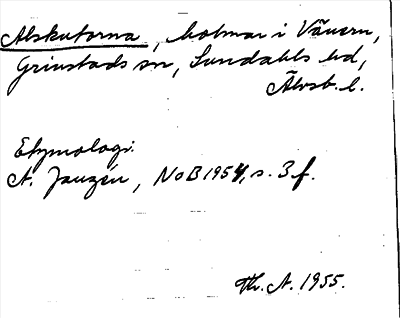 Alskutorna, holmar i Vänern,
Grinstads sn, Sundals hd,
Älvsb. l.
Etymologi.
A. Janzén, NoB 1954, s. 3 f.
Th. A. 1955.